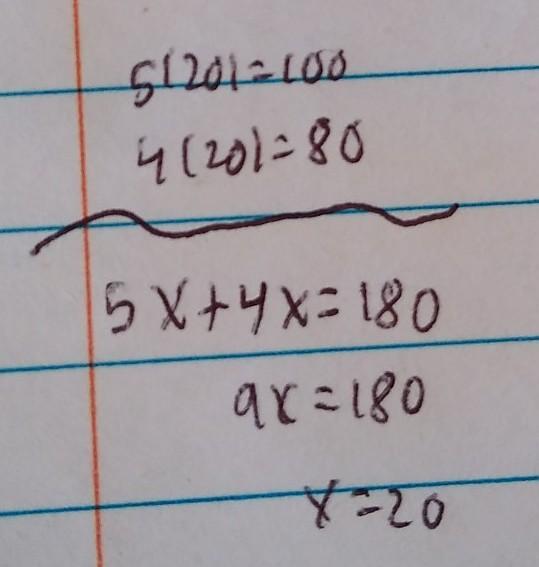 5(20)=100
4(20)=80
5x+4x=180
9x=180
x=20